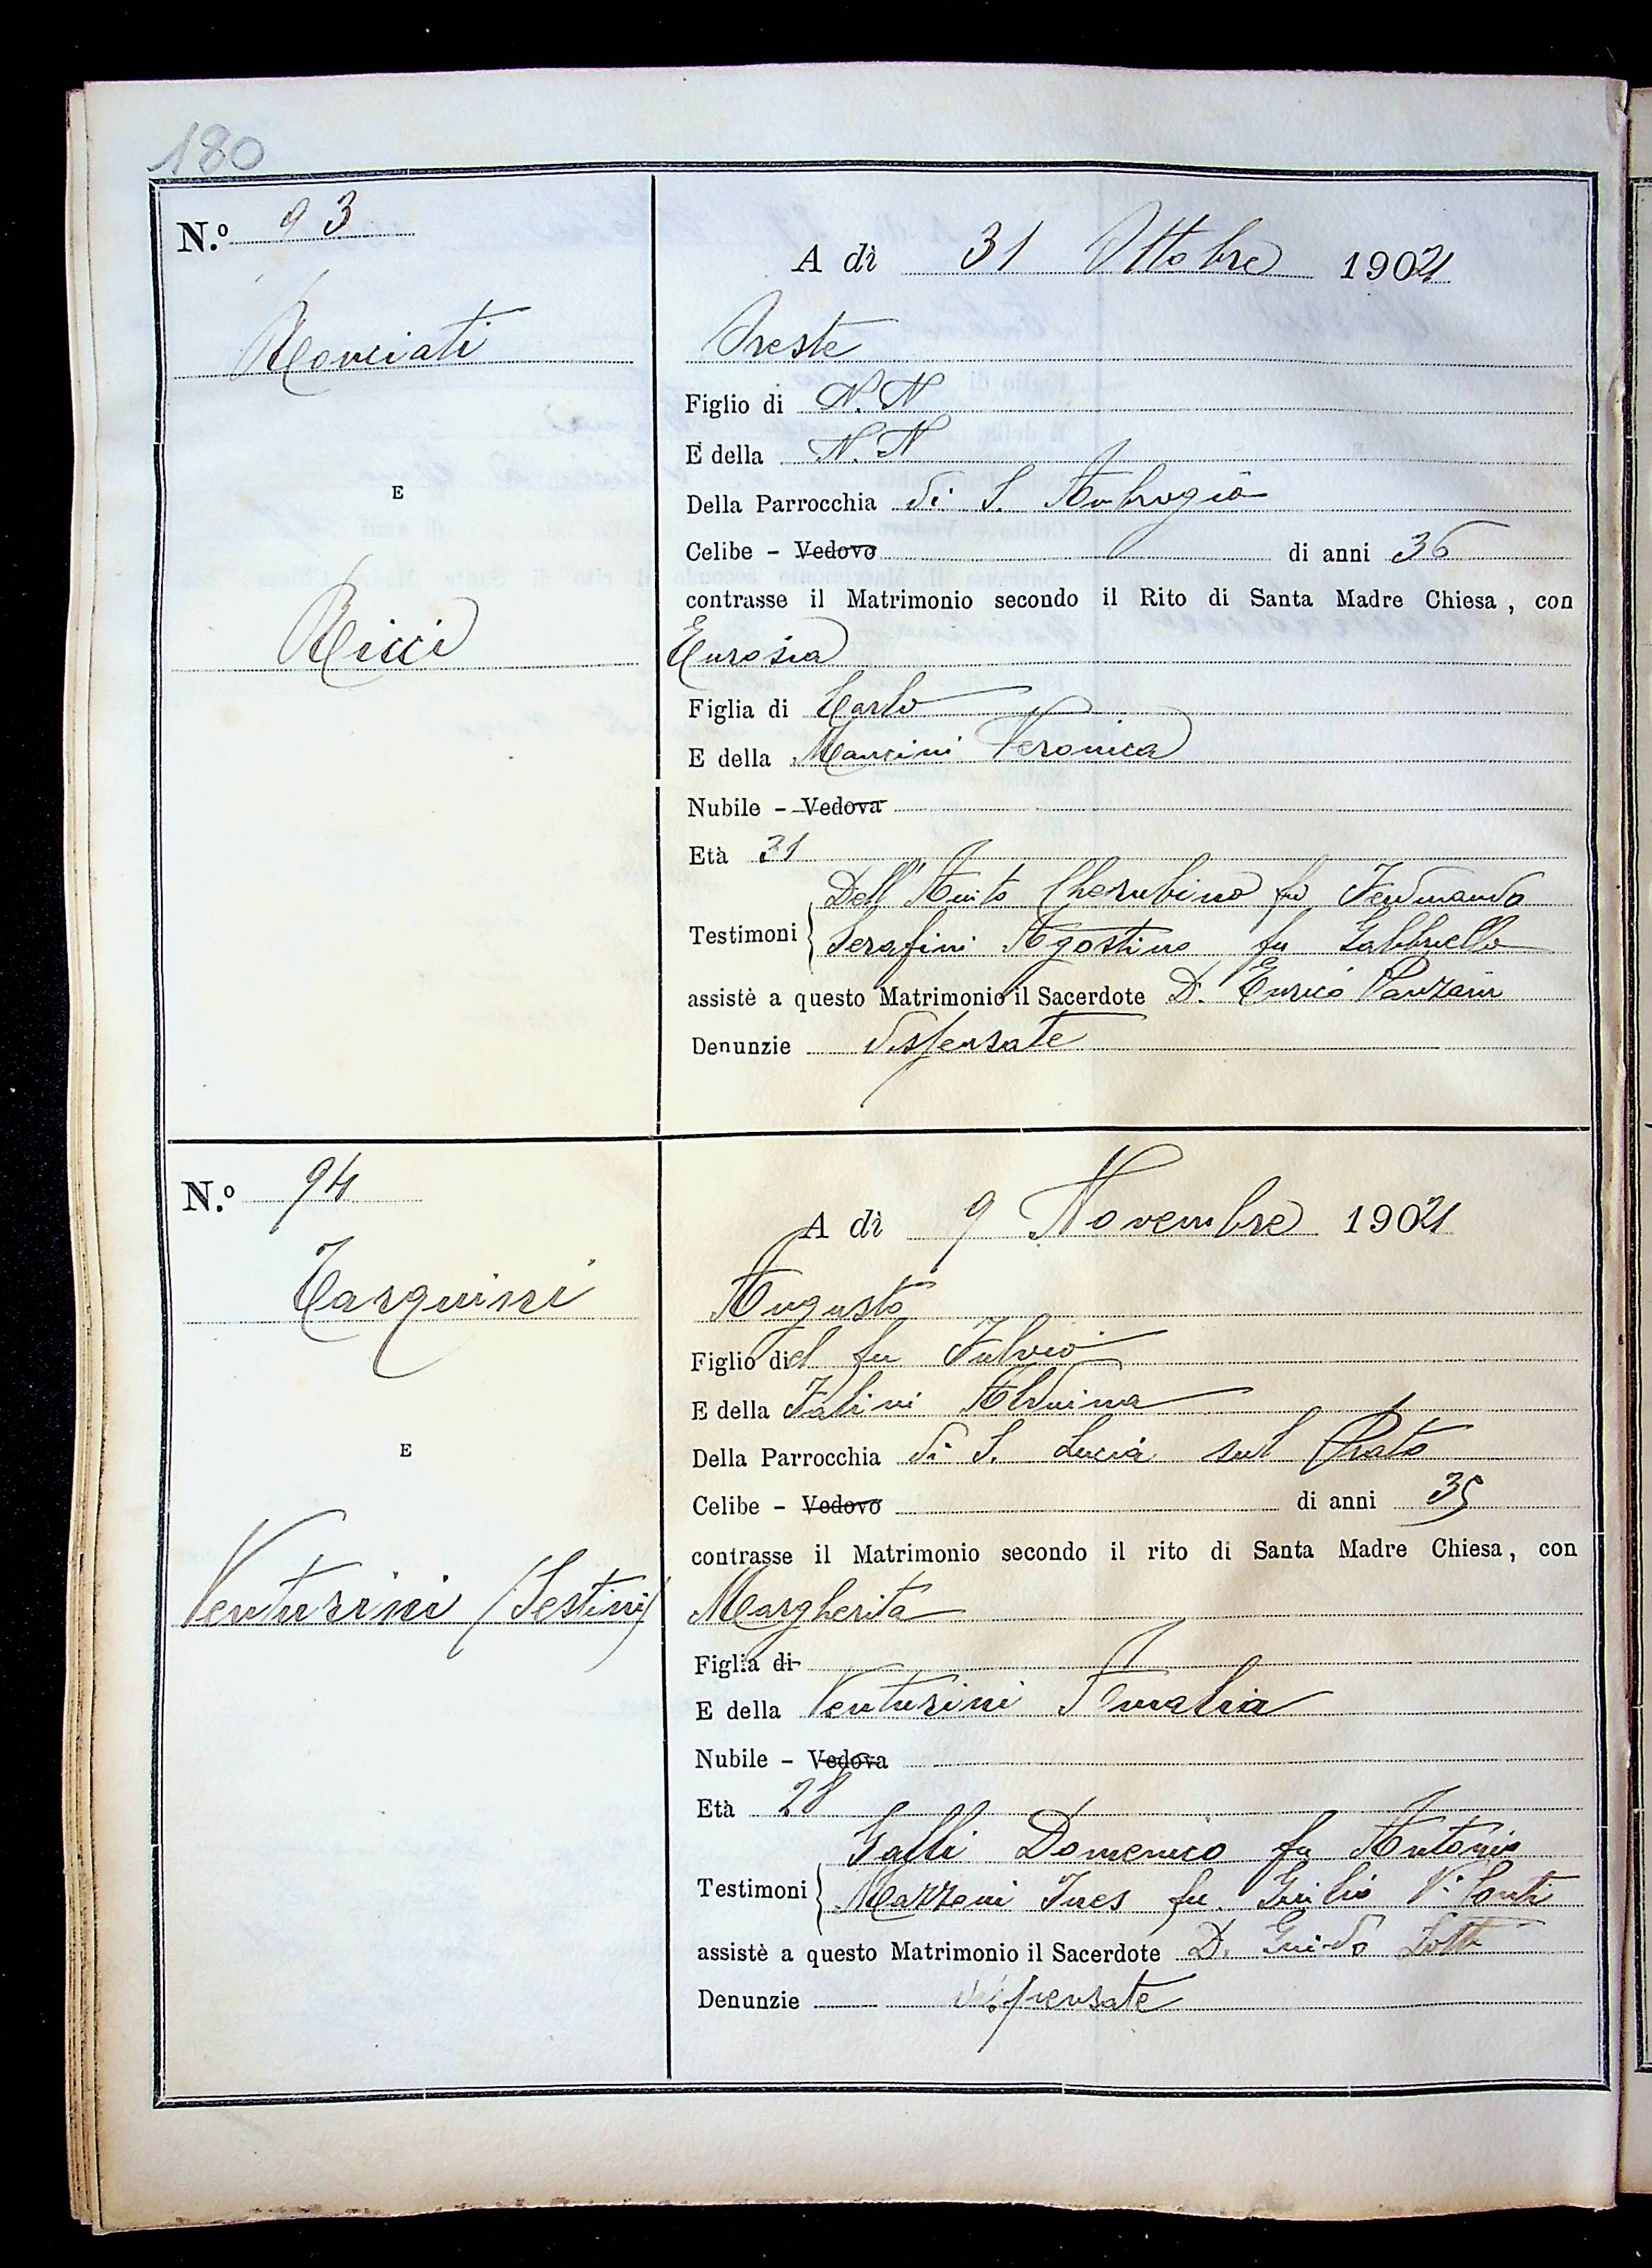 180
N.º 93
A dì 31 Ottobre 1921
Ronciati
Oreste
Figlio di N. N
E della N. N
E
Della Parrocchia di S. Ambrogio
Celibe - Vedovo di anni 36
contrasse il Matrimonio secondo il Rito di Santa Madre Chiesa, con
Ricci
Eurosia
Figlia di Carlo
E della Mancini Veronica
Nubile - Vedova
Età 31
Testimoni Dell' Cherubino fu Ferdinando
Serafini Agostino fu Gabbriello
assistè a questo Matrimonio il Sacerdote D. Enrico Panzani
Denunzie dispensate
N.º 94
A dì 9 Novembre 1921
Tarquini
Augusto
Figlio del fu Fulvio
E della Falini Alduina
E
Della Parrocchia di S. Lucia sul Prato
Celibe - Vedovo di anni 35
contrasse il Matrimonio secondo il rito di Santa Madre Chiesa, con
Venturini (Sestini)
Margherita
Figlia di
E della Venturini
Nubile - Vedova
Età 28
Testimoni Galli Domenico fu Antonio
Mazzoni Ines fu Giulio V. Conti
assistè a questo Matrimonio il Sacerdote D. Guido Lotti
Denunzie dispensate